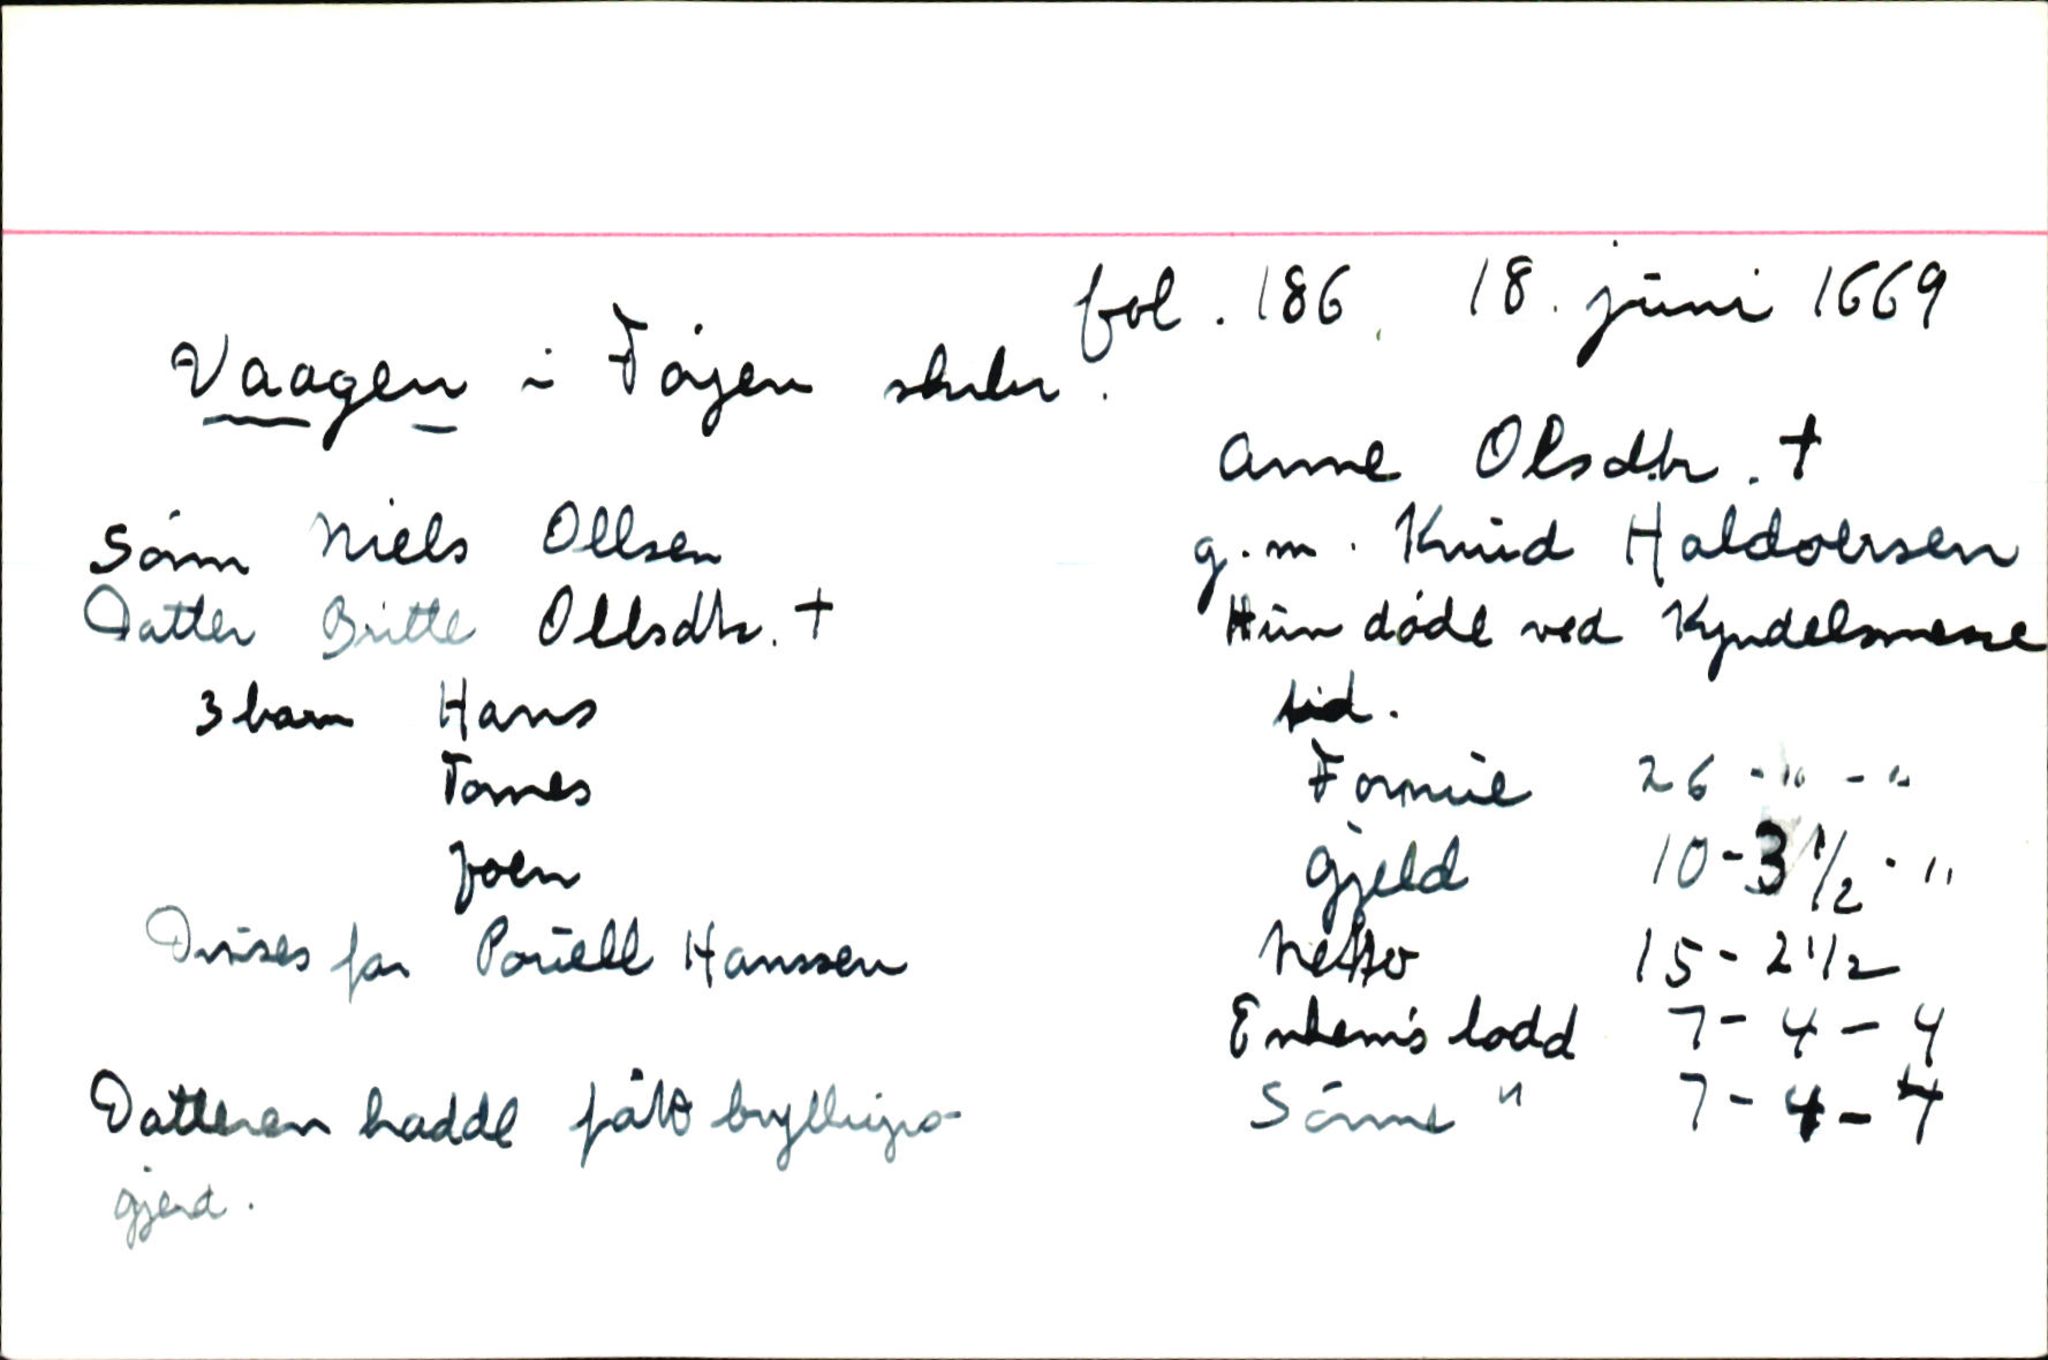 fol. 186. 18. juni 1669
Vaagen i Føyen skibr.
Anne Olsdtr. †
Sønn Niels Ollsen
g.m. Knud Haldoersen
Datter Britte Ollsdtr. †
Hun døde ved Kyndelsmesse
3 barn Hans
tid.
Tomes
Formue 26 - " - "
Joen
Gjeld 10 - 3 1/2 - "
far Pouell Hanssen
Netto 15 - 2 1/2
Enkem's lodd 7 - 4 - 4
Datteren hadde fått bryllups-
Sønne " 7 - 4 - 4
gjerd.